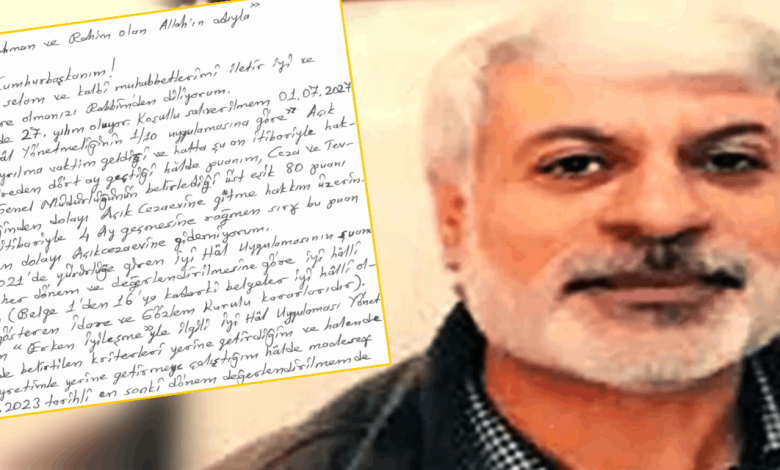 hman ve Rahim olan Allah'ın adıyla"
umhurbaşkanım!
selam ve kalbî muhabbetlerimi iletir iyi ve
re olmanızı Rabbimden diliyorum.
de 27. yılım oluyor. Koşullu salıverilmem 01.07.2027
âl Yönetmeliğinin 1/10 uygulamasına göre" Açık
yrılma vaktim geldiği ve hatta şu an itibariyle hak-
reden dört ay geçtiği hâlde puanım, Ceza ve Tev-
Genel Müdürlüğünün belirlediği üst eşik 80 puanı
ğimden dolayı Açık Cezaevine gitme hakkım üzerin-
itibariyle 4 Ay geçmesine rağmen sırf bu puan
n dolayı Açıkcezaevine gidemiyorum.
021'de yürürlüğe giren İyi Hâl Uygulamasının şuana
her dönem ve değerlendirilmesine göre iyi hâlli
(Belge 1'den 16'ya kadarki belgeler iyi hâlli ol-
gösteren İdare ve Gözlem Kurulu kararlarıdır).
n "Erken İyileşme"yle ilgili İyi Hâl Uygulaması Yönet
de belirtilen kriterleri yerine getirdiğim ve halende
yretimde yerine getirmeye çalıştığım hâlde maalesef
.2023 tarihli en sonki dönem değerlendirilmemde